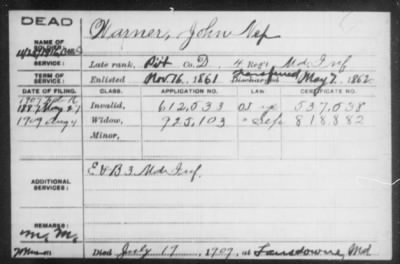 DEAD
NAME OF SOLDIER: Warner, John Nep
SERVICE: Late rank, Pvt Co. D, 4 Reg't Md. Inf
TERM OF SERVICE: Enlisted Nov. 16, 1861 Discharged Transferred May 7, 1862
DATE OF FILING. CLASS. APPLICATION NO. LAW. CERTIFICATE NO.
1887 May 27 Invalid, 612,533 537,038
1909 Aug 4 Widow, 925,103 " Sep 818882
Minor,
ADDITIONAL SERVICES: E & B 3 Md. Inf.
REMARKS:
Died July 17, 1909, at Lansdowne, Md